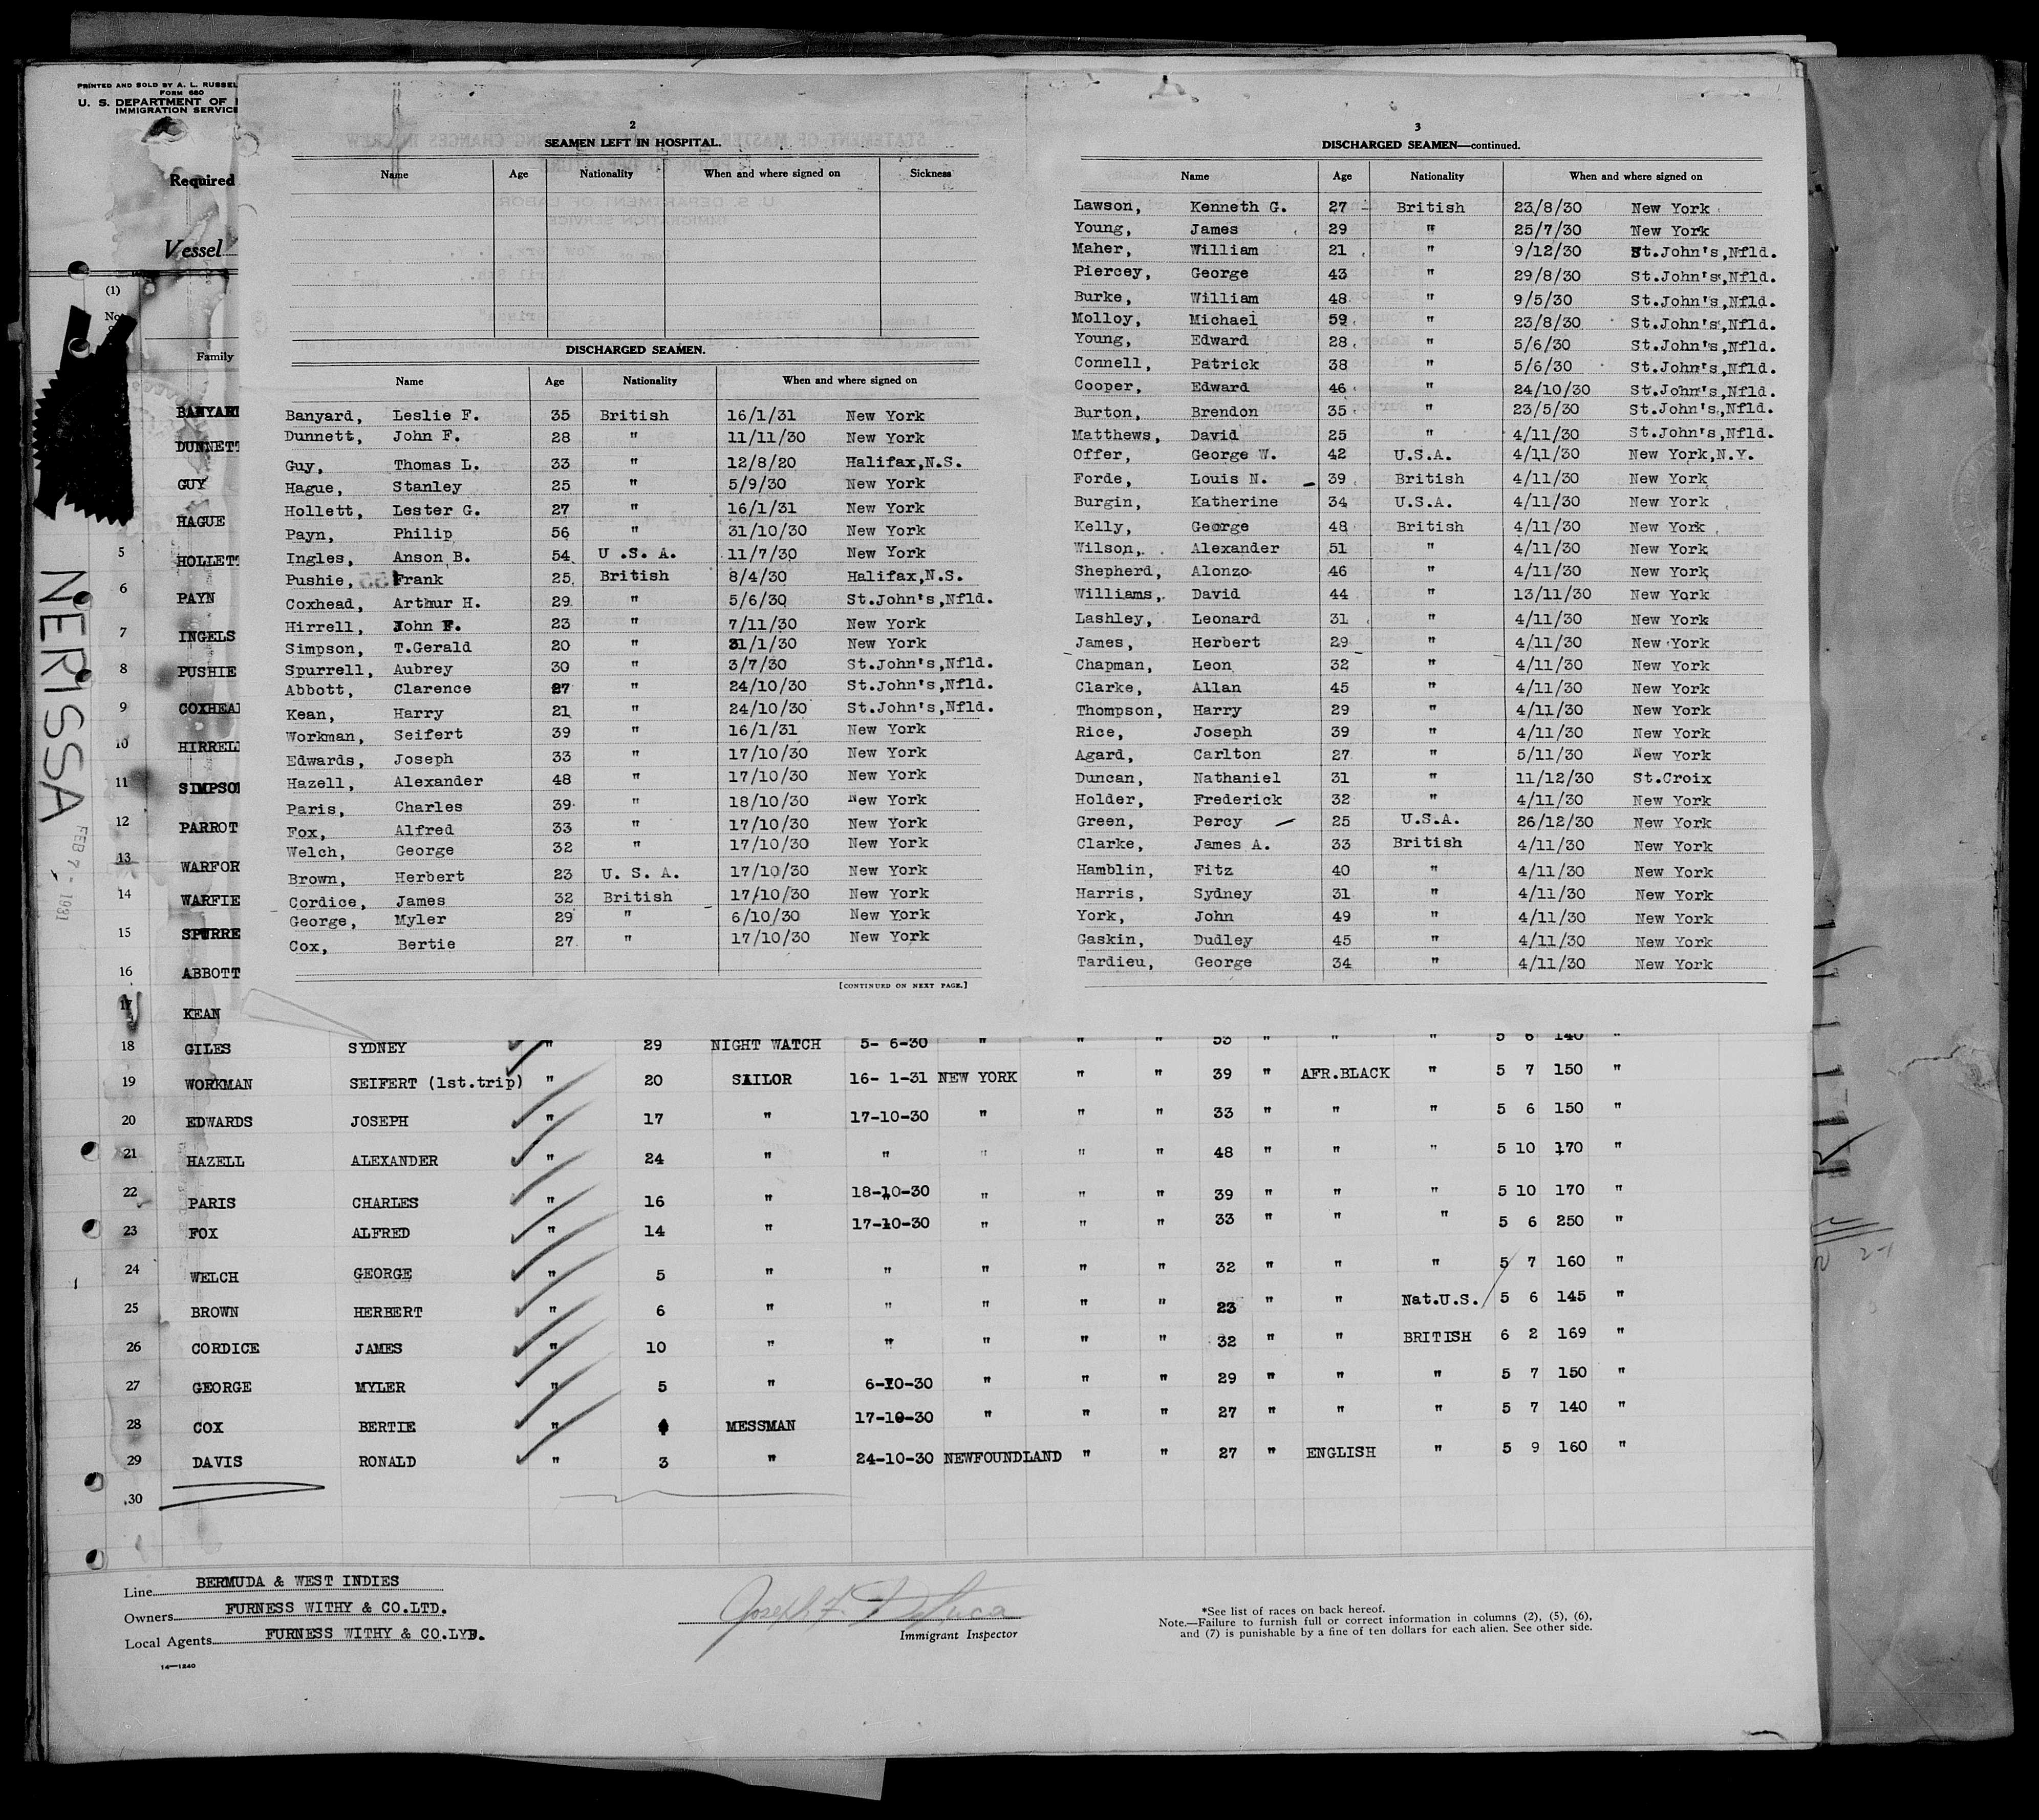 PRINTED AND SOLD BY A. L. RUSSEL
FORM 680
U. S. DEPARTMENT OF
IMMIGRATION SERVICE
Required
Vessel
(1)
Family
NERISSA
FEB 7 - 1931
BANYARD
DUNNETT
GUY
HAGUE
5 HOLLETT
6 PAYN
7 INGELS
8 PUSHIE
9 COXHEAD
10 HIRRELL
11 SIMPSON
12 PARROT
13 WARFOR
14 WARFIE
15 SPURRE
16 ABBOTT
17 KEAN
2
SEAMEN LEFT IN HOSPITAL.
Name Age Nationality When and where signed on Sickness
DISCHARGED SEAMEN.
Name Age Nationality When and where signed on
Banyard, Leslie F. 35 British 16/1/31 New York
Dunnett, John F. 28 " 11/11/30 New York
Guy, Thomas L. 33 " 12/8/20 Halifax,N.S.
Hague, Stanley 25 " 5/9/30 New York
Hollett, Lester G. 27 " 16/1/31 New York
Payn, Philip 56 " 31/10/30 New York
Ingles, Anson B. 54 U .S. A. 11/7/30 New York
Pushie, Frank 25 British 8/4/30 Halifax,N.S.
Coxhead, Arthur H. 29 " 5/6/30 St.John's,Nfld.
Hirrell, John F. 23 " 7/11/30 New York
Simpson, T.Gerald 20 " 31/1/30 New York
Spurrell, Aubrey 30 " 3/7/30 St.John's,Nfld.
Abbott, Clarence 27 " 24/10/30 St.John's,Nfld.
Kean, Harry 21 " 24/10/30 St.John's,Nfld.
Workman, Seifert 39 " 16/1/31 New York
Edwards, Joseph 33 " 17/10/30 New York
Hazell, Alexander 48 " 17/10/30 New York
Paris, Charles 39 " 18/10/30 New York
Fox, Alfred 33 " 17/10/30 New York
Welch, George 32 " 17/10/30 New York
Brown, Herbert 23 U. S. A. 17/10/30 New York
Cordice, James 32 British 17/10/30 New York
George, Myler 29 " 6/10/30 New York
Cox, Bertie 27 " 17/10/30 New York
[CONTINUED ON NEXT PAGE.]
3
DISCHARGED SEAMEN—continued.
Name Age Nationality When and where signed on
Lawson, Kenneth G. 27 British 23/8/30 New York
Young, James 29 " 25/7/30 New York
Maher, William 21 " 9/12/30 St.John's,Nfld.
Piercey, George 43 " 29/8/30 St.John's,Nfld.
Burke, William 48 " 9/5/30 St.John's,Nfld.
Molloy, Michael 59 " 23/8/30 St.John's,Nfld.
Young, Edward 28 " 5/6/30 St.John's,Nfld.
Connell, Patrick 38 " 5/6/30 St.John's,Nfld.
Cooper, Edward 46 " 24/10/30 St.John's,Nfld.
Burton, Brendon 35 " 23/5/30 St.John's,Nfld.
Matthews, David 25 " 4/11/30 St.John's,Nfld.
Offer, George W. 42 U.S.A. 4/11/30 New York,N.Y.
Forde, Louis N. 39 British 4/11/30 New York
Burgin, Katherine 34 U.S.A. 4/11/30 New York
Kelly, George 48 British 4/11/30 New York
Wilson, Alexander 51 " 4/11/30 New York
Shepherd, Alonzo 46 " 4/11/30 New York
Williams, David 44 " 13/11/30 New York
Lashley, Leonard 31 " 4/11/30 New York
James, Herbert 29 " 4/11/30 New York
Chapman, Leon 32 " 4/11/30 New York
Clarke, Allan 45 " 4/11/30 New York
Thompson, Harry 29 " 4/11/30 New York
Rice, Joseph 39 " 4/11/30 New York
Agard, Carlton 27 " 5/11/30 New York
Duncan, Nathaniel 31 " 11/12/30 St.Croix
Holder, Frederick 32 " 4/11/30 New York
Green, Percy 25 U.S.A. 26/12/30 New York
Clarke, James A. 33 British 4/11/30 New York
Hamblin, Fitz 40 " 4/11/30 New York
Harris, Sydney 31 " 4/11/30 New York
York, John 49 " 4/11/30 New York
Gaskin, Dudley 45 " 4/11/30 New York
Tardieu, George 34 " 4/11/30 New York
18 GILES SYDNEY " 29 NIGHT WATCH 5- 6-30 " " 53 " " " 5 6 140 "
19 WORKMAN SEIFERT (1st.trip) " 20 SAILOR 16- 1-31 NEW YORK " " 39 " AFR.BLACK " 5 7 150 "
20 EDWARDS JOSEPH " 17 " 17-10-30 " " " 33 " " " 5 6 150 "
21 HAZELL ALEXANDER " 24 " " " " " 48 " " " 5 10 170 "
22 PARIS CHARLES " 16 " 18-10-30 " " " 39 " " " 5 10 170 "
23 FOX ALFRED " 14 " 17-10-30 " " " 33 " " " 5 6 250 "
24 WELCH GEORGE " 5 " " " " " 32 " " " 5 7 160 "
25 BROWN HERBERT " 6 " " " " " 23 " " Nat.U.S. 5 6 145 "
26 CORDICE JAMES " 10 " " " " " 32 " " BRITISH 6 2 169 "
27 GEORGE MYLER " 5 " 6-10-30 " " " 29 " " " 5 7 150 "
28 COX BERTIE " 4 MESSMAN 17-10-30 " " " 27 " " " 5 7 140 "
29 DAVIS RONALD " 3 " 24-10-30 NEWFOUNDLAND " " 27 " ENGLISH " 5 9 160 "
30
Line BERMUDA & WEST INDIES
Owners FURNESS WITHY & CO.LTD.
Local Agents FURNESS WITHY & CO.LTD.
14—1240
Joseph F. DeLuca
Immigrant Inspector
*See list of races on back hereof.
Note.—Failure to furnish full or correct information in columns (2), (5), (6),
and (7) is punishable by a fine of ten dollars for each alien. See other side.